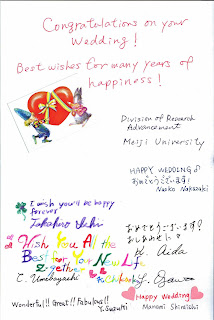 Congratulations on your
Wedding!
Best wishes for many years of
happiness!
Division of Research
Advancement
Meiji University
HAPPY WEDDING
おめでとうございます!
Naoko Nakazaki
I wish you'll be happy
forever
おめでとうございます!
Wish You All the
Best for Your New Life
Together
K. Aida
C. Umebayashi
Happy Wedding
Wonderful!! Great!! Fabulous!!
Y. Suzuki
Manami Shiraishi